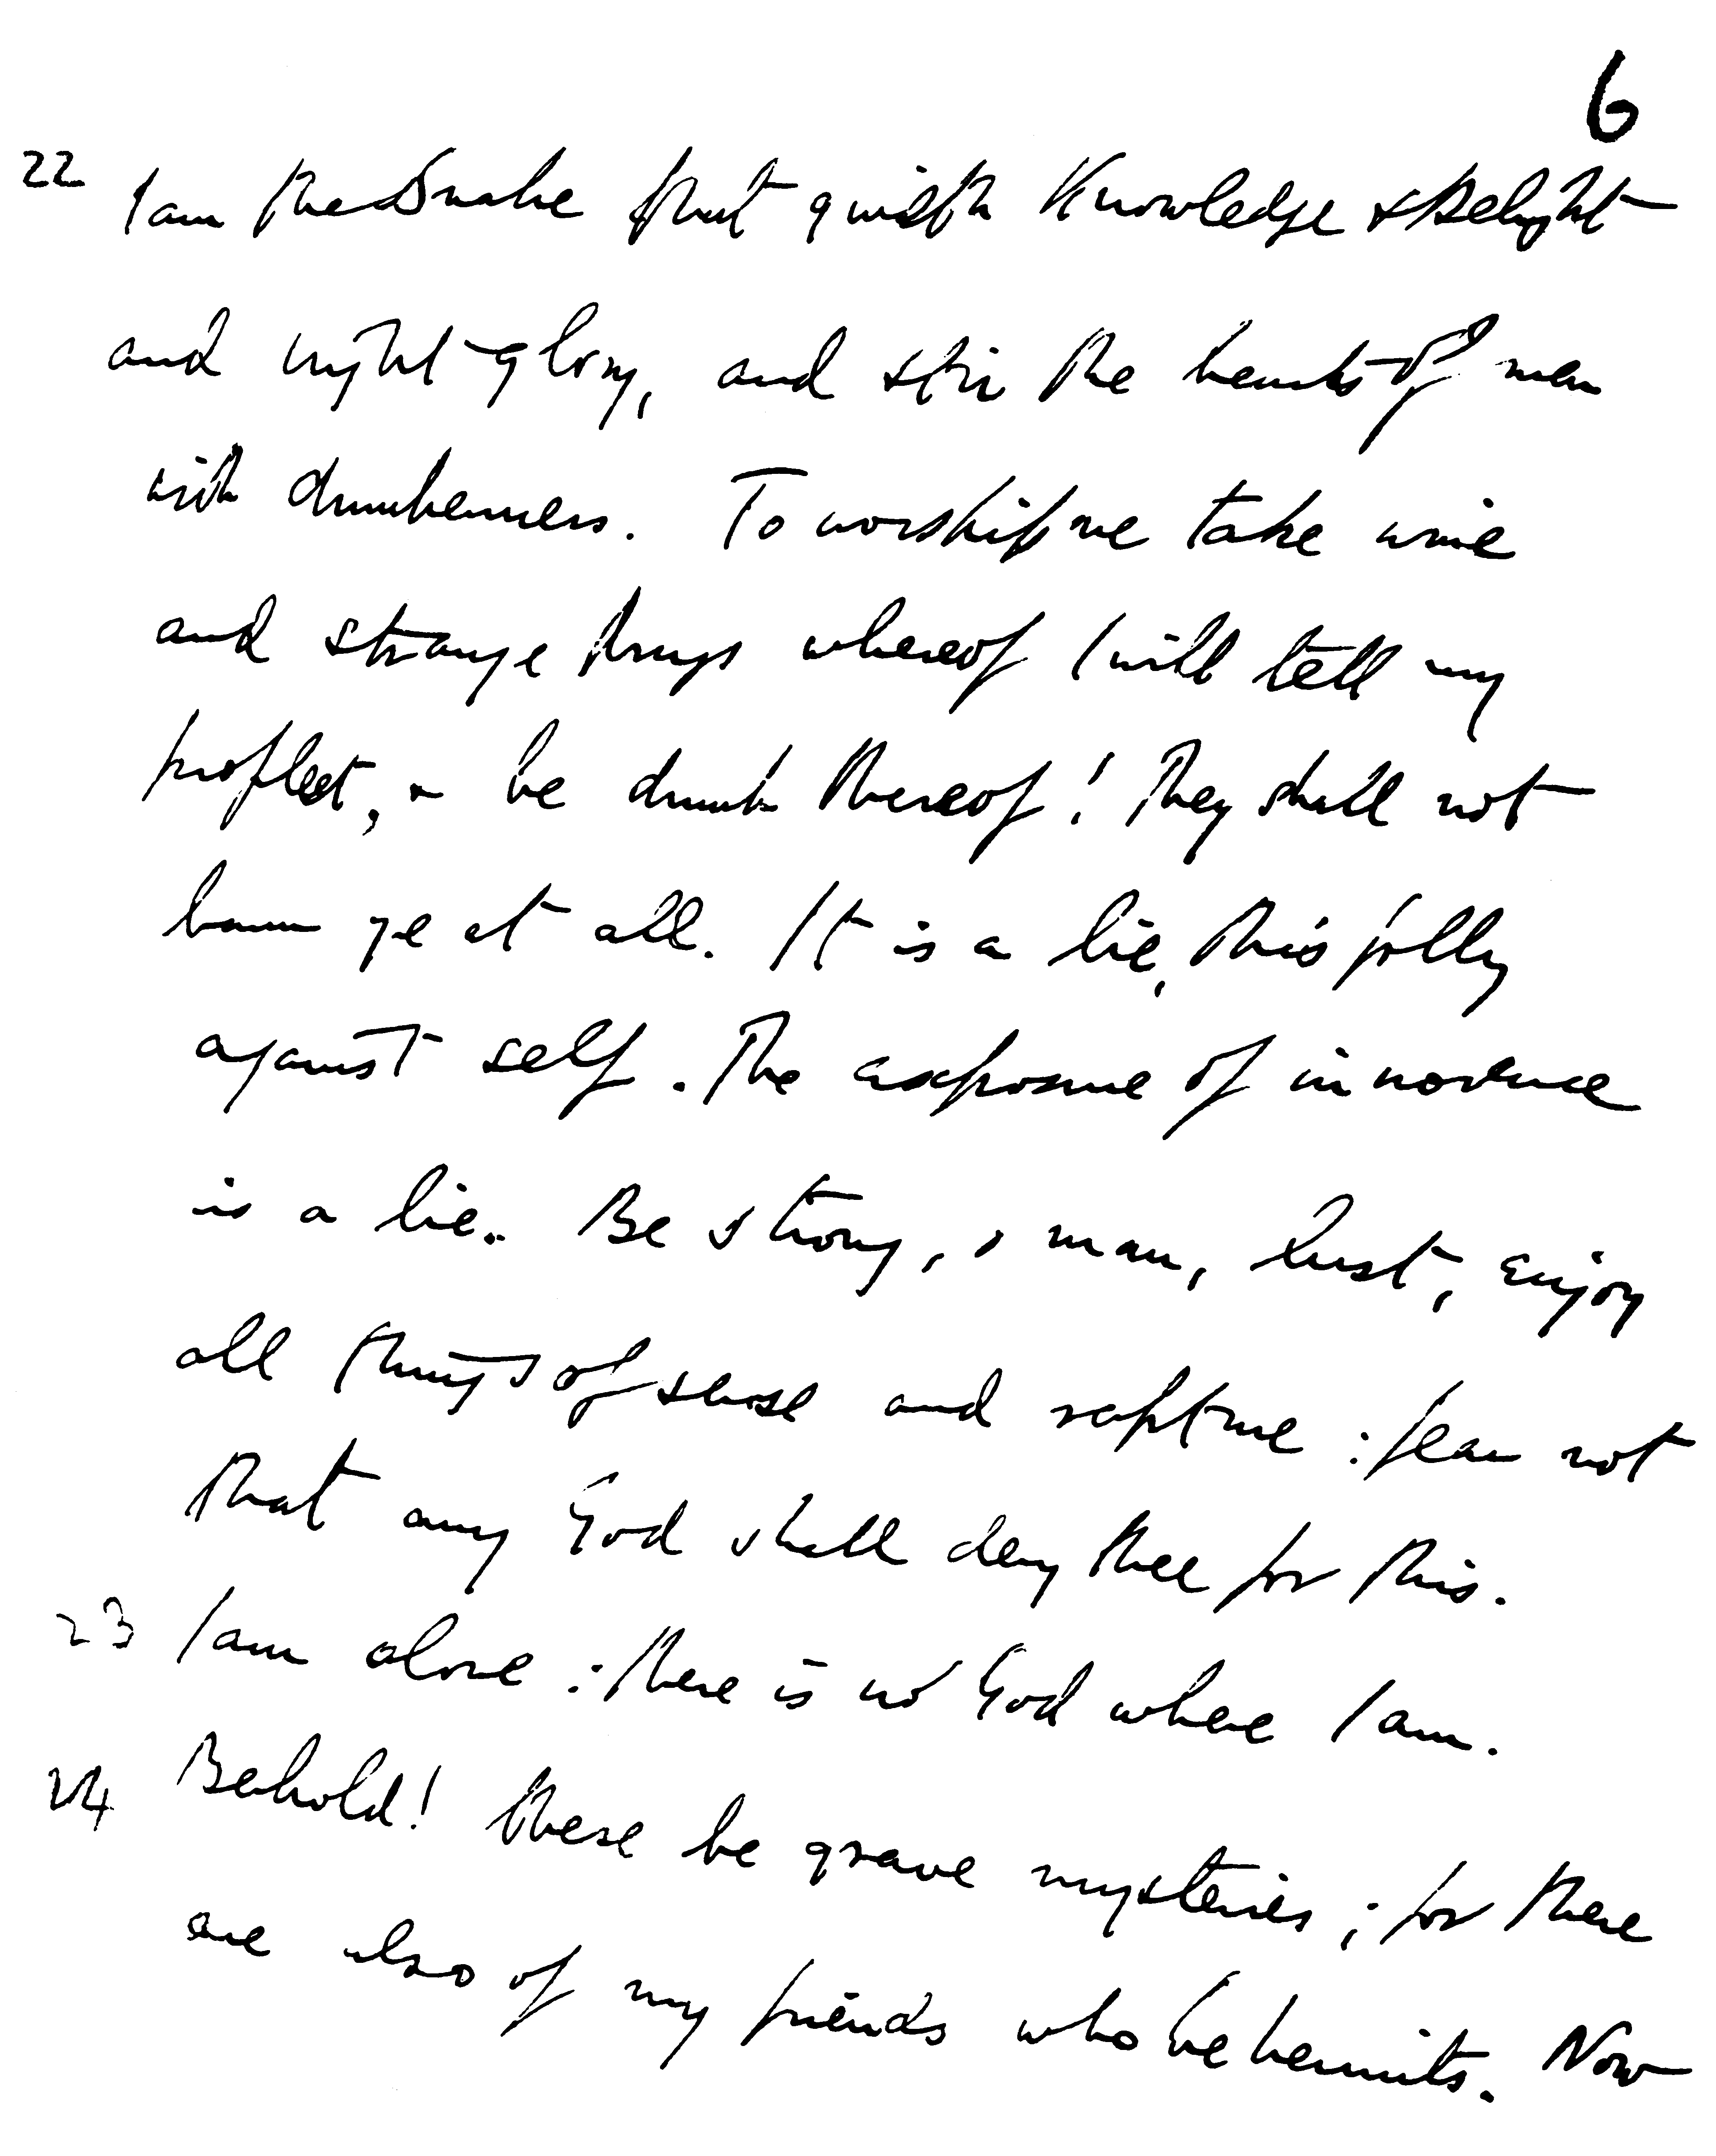 6
22 I am the Snake that giveth Knowledge & Delight
and bright glory, and stir the hearts of men
with drunkenness. To worship me take wine
and strange drugs whereof I will tell my
prophet, & be drunk thereof! They shall not
harm ye at all. It is a lie, this folly
against self. The exposure of innocence
is a lie. Be strong, o man, lust, enjoy
all things of sense and rapture: fear not
that any God shall deny thee for this.
23 I am alone: there is no God where I am.
24 Behold! these be grave mysteries; for there
are also of my friends who be hermits. Now